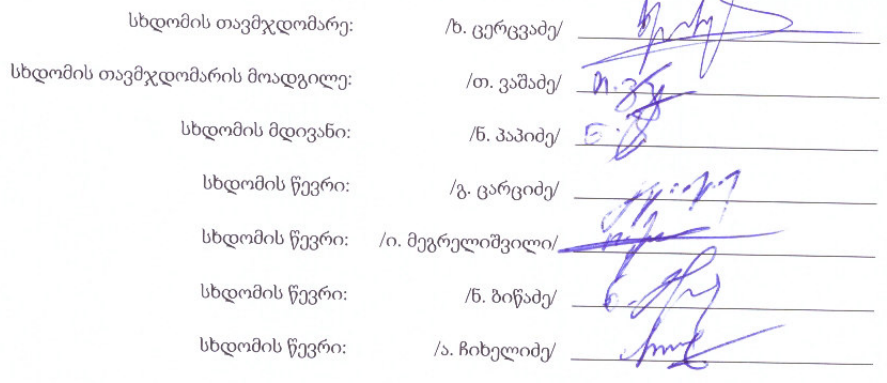 სხდომის თავმჯდომარე: /ხ. ცერცვაძე/
სხდომის თავმჯდომარის მოადგილე: /თ. ვაშაძე/
სხდომის მდივანი: /ნ. პაპიძე/
სხდომის წევრი: /გ. ცარციძე/
სხდომის წევრი: /ი. მეგრელიშვილი/
სხდომის წევრი: /ნ. ბიწაძე/
სხდომის წევრი: /ა. ჩიხელიძე/